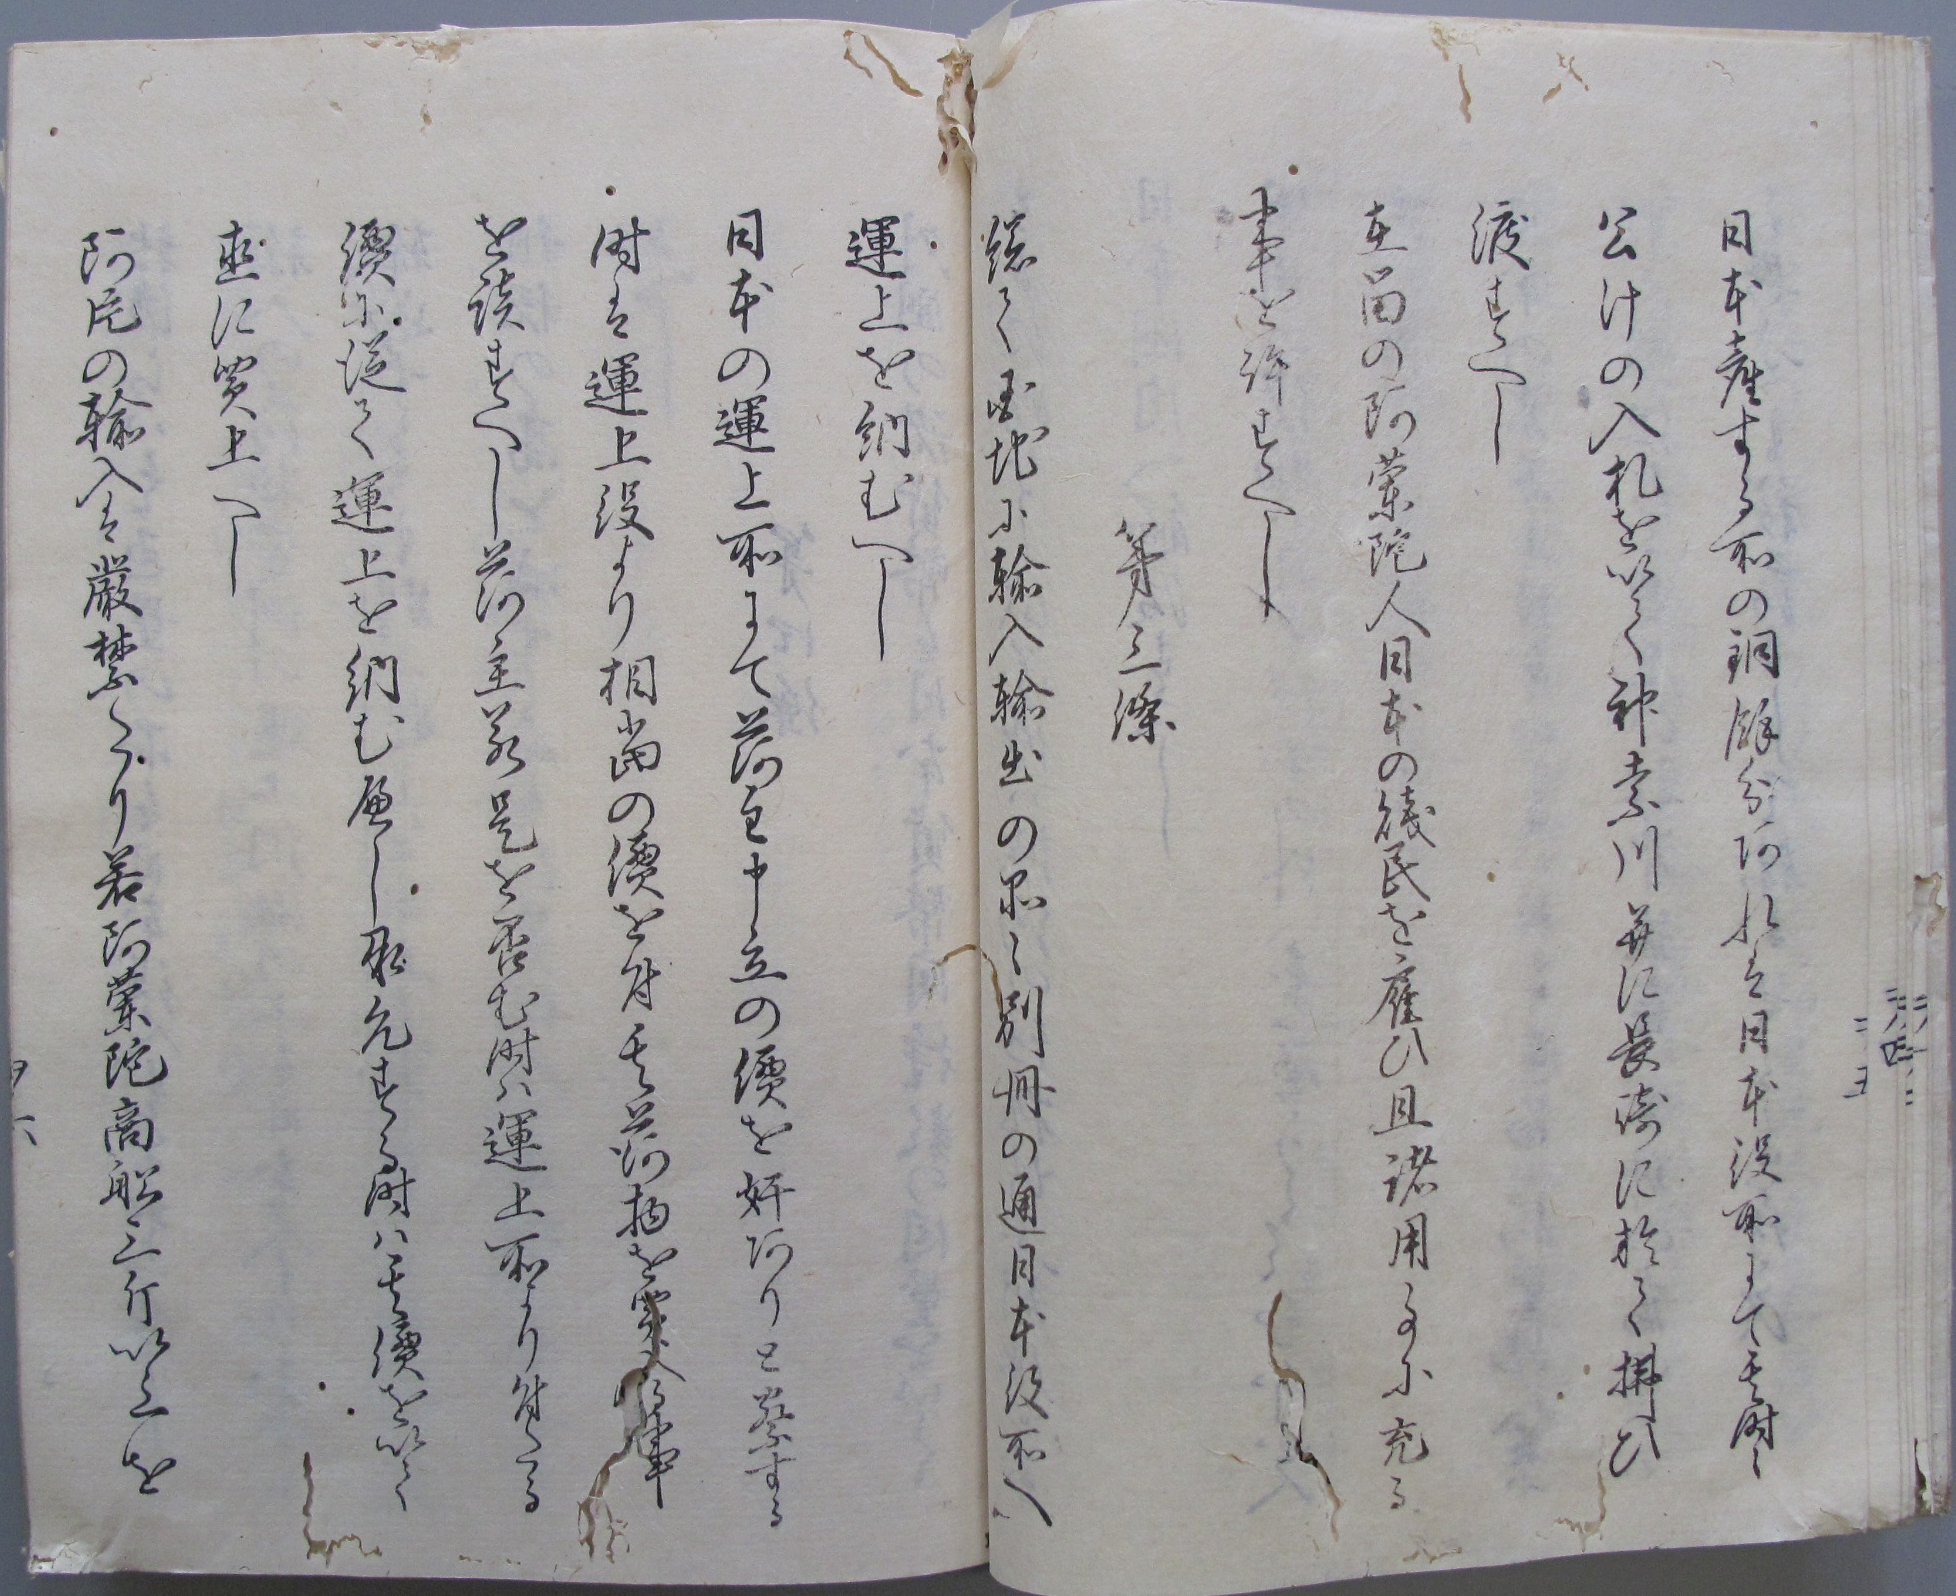 日本産する所の銅餘分阿れは日本役所にて其時々
公けの入札を以て神奈川并に長崎に於て拂ひ
渡すへし
在留の阿蘭陀人日本の賤民を雇ひ且諸用事に充る
事を許すへし
第三條
總て国地に輸入輸出の品々別冊の通日本役所へ
運上を納むへし
日本の運上所にて荷主申立の價を奸阿りと察する
時は運上役より相當の價を付其荷物を買入る事
を談すへし荷主若是を否む時ハ運上所より付たる
價に從て運上を納む屁し承允する時ハ其價を以て
直に買上へし
阿片の輸入は嚴禁たり若阿蘭陀商船三斤以上を